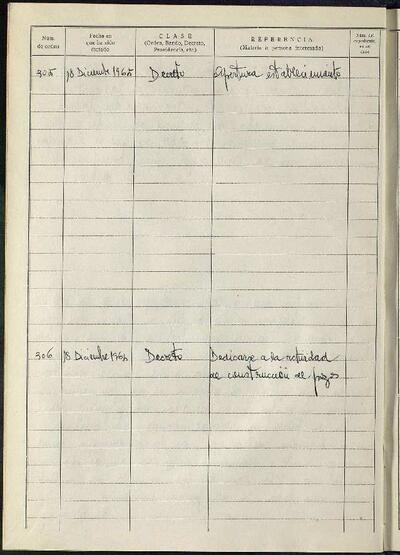 Núm. de orden
Fecha en que ha sido dictado
CLASE
(Orden, Bando, Decreto, Providencia, etc.)
REFERENCIA
(Materia o persona interesada)
Núm. del expediente en su caso
305 18 Diciembre 1965 Decreto Apertura establecimiento
306 18 Diciembre 1965 Decreto Dedicarse a la actividad
de construcción de pozos